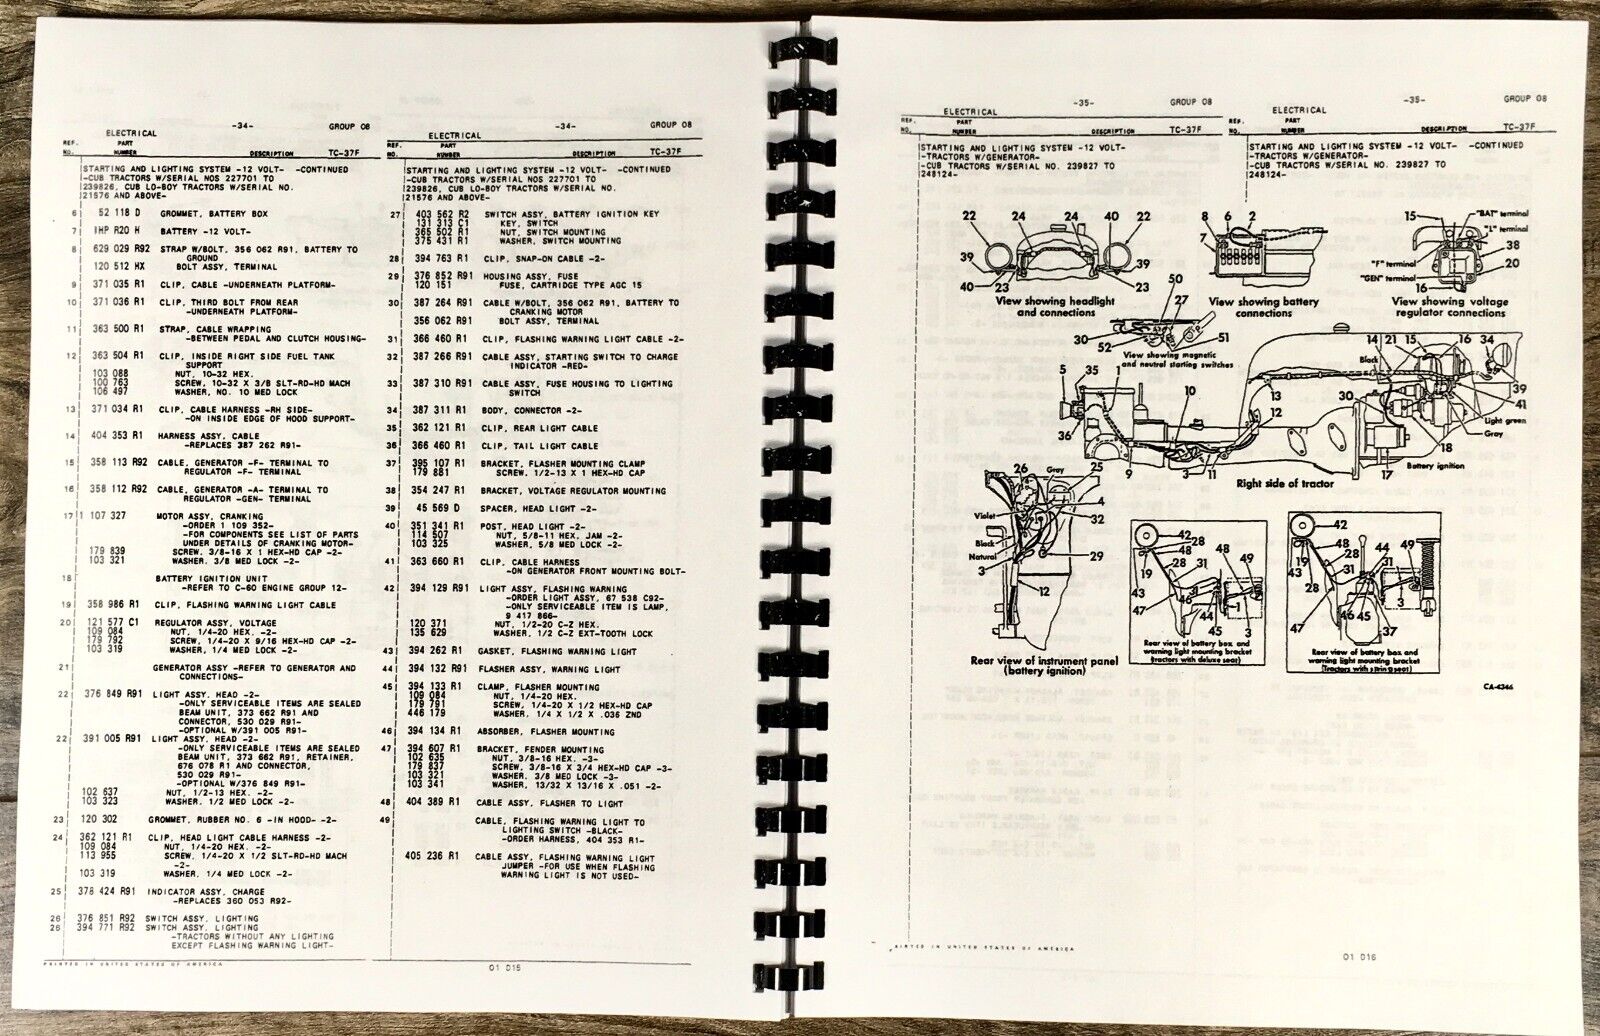 ELECTRICAL -34- GROUP 08
REF. NO. PART NUMBER DESCRIPTION TC-37F
STARTING AND LIGHTING SYSTEM -12 VOLT- -CONTINUED
-CUB TRACTORS W/SERIAL NOS 227701 TO
239826, CUB LO-BOY TRACTORS W/SERIAL NO.
21576 AND ABOVE-
6 52 118 D GROMMET, BATTERY BOX
7 1HP R20 H BATTERY -12 VOLT-
8 629 029 R92 STRAP W/BOLT, 356 062 R91, BATTERY TO
GROUND
120 512 HX BOLT ASSY, TERMINAL
9 371 035 R1 CLIP, CABLE -UNDERNEATH PLATFORM-
10 371 036 R1 CLIP, THIRD BOLT FROM REAR
-UNDERNEATH PLATFORM-
11 363 500 R1 STRAP, CABLE WRAPPING
-BETWEEN PEDAL AND CLUTCH HOUSING-
12 363 504 R1 CLIP, INSIDE RIGHT SIDE FUEL TANK
SUPPORT
103 088 NUT, 10-32 HEX.
100 763 SCREW, 10-32 X 3/8 SLT-RD-HD MACH
106 497 WASHER, NO. 10 MED LOCK
13 371 034 R1 CLIP, CABLE HARNESS -RH SIDE-
-ON INSIDE EDGE OF HOOD SUPPORT-
14 404 353 R1 HARNESS ASSY, CABLE
-REPLACES 387 262 R91-
15 358 113 R92 CABLE, GENERATOR -F- TERMINAL TO
REGULATOR -F- TERMINAL
16 358 112 R92 CABLE, GENERATOR -A- TERMINAL TO
REGULATOR -GEN- TERMINAL
17 1 107 327 MOTOR ASSY, CRANKING
-ORDER 1 109 352-
-FOR COMPONENTS SEE LIST OF PARTS
UNDER DETAILS OF CRANKING MOTOR-
179 839 SCREW, 3/8-16 X 1 HEX-HD CAP -2-
103 321 WASHER, 3/8 MED LOCK -2-
18 BATTERY IGNITION UNIT
-REFER TO C-60 ENGINE GROUP 12-
19 358 986 R1 CLIP, FLASHING WARNING LIGHT CABLE
20 121 577 C1 REGULATOR ASSY, VOLTAGE
109 084 NUT, 1/4-20 HEX. -2-
179 792 SCREW, 1/4-20 X 9/16 HEX-HD CAP -2-
103 319 WASHER, 1/4 MED LOCK -2-
21 GENERATOR ASSY -REFER TO GENERATOR AND
CONNECTIONS-
22 376 849 R91 LIGHT ASSY, HEAD -2-
-ONLY SERVICEABLE ITEMS ARE SEALED
BEAM UNIT, 373 662 R91 AND
CONNECTOR, 530 029 R91-
-OPTIONAL W/391 005 R91-
22 391 005 R91 LIGHT ASSY, HEAD -2-
-ONLY SERVICEABLE ITEMS ARE SEALED
BEAM UNIT, 373 662 R91, RETAINER,
676 078 R1 AND CONNECTOR,
530 029 R91-
-OPTIONAL W/376 849 R91-
102 637 NUT, 1/2-13 HEX. -2-
103 323 WASHER, 1/2 MED LOCK -2-
23 120 302 GROMMET, RUBBER NO. 6 -IN HOOD- -2-
24 362 121 R1 CLIP, HEAD LIGHT CABLE HARNESS -2-
109 084 NUT, 1/4-20 HEX. -2-
113 955 SCREW, 1/4-20 X 1/2 SLT-RD-HD MACH
-2-
103 319 WASHER, 1/4 MED LOCK -2-
25 378 424 R91 INDICATOR ASSY, CHARGE
-REPLACES 360 053 R92-
26 376 851 R92 SWITCH ASSY, LIGHTING
26 394 771 R92 SWITCH ASSY, LIGHTING
-TRACTORS WITHOUT ANY LIGHTING
EXCEPT FLASHING WARNING LIGHT-
PRINTED IN UNITED STATES OF AMERICA
ELECTRICAL -34- GROUP 08
REF. NO. PART NUMBER DESCRIPTION TC-37F
STARTING AND LIGHTING SYSTEM -12 VOLT- -CONTINUED
-CUB TRACTORS W/SERIAL NOS 227701 TO
239826, CUB LO-BOY TRACTORS W/SERIAL NO.
21576 AND ABOVE-
27 403 562 R2 SWITCH ASSY, BATTERY IGNITION KEY
131 313 C1 KEY, SWITCH
365 502 R1 NUT, SWITCH MOUNTING
375 431 R1 WASHER, SWITCH MOUNTING
28 394 763 R1 CLIP, SNAP-ON CABLE -2-
29 376 852 R91 HOUSING ASSY, FUSE
120 151 FUSE, CARTRIDGE TYPE AGC 15
30 387 264 R91 CABLE W/BOLT, 356 062 R91, BATTERY TO
CRANKING MOTOR
356 062 R91 BOLT ASSY, TERMINAL
31 366 460 R1 CLIP, FLASHING WARNING LIGHT CABLE -2-
32 387 266 R91 CABLE ASSY, STARTING SWITCH TO CHARGE
INDICATOR -RED-
33 387 310 R91 CABLE ASSY, FUSE HOUSING TO LIGHTING
SWITCH
34 387 311 R1 BODY, CONNECTOR -2-
35 362 121 R1 CLIP, REAR LIGHT CABLE
36 366 460 R1 CLIP, TAIL LIGHT CABLE
37 395 107 R1 BRACKET, FLASHER MOUNTING CLAMP
179 881 SCREW, 1/2-13 X 1 HEX-HD CAP
38 354 247 R1 BRACKET, VOLTAGE REGULATOR MOUNTING
39 45 569 D SPACER, HEAD LIGHT -2-
40 351 341 R1 POST, HEAD LIGHT -2-
114 507 NUT, 5/8-11 HEX, JAM -2-
103 325 WASHER, 5/8 MED LOCK -2-
41 363 660 R1 CLIP, CABLE HARNESS
-ON GENERATOR FRONT MOUNTING BOLT-
42 394 129 R91 LIGHT ASSY, FLASHING WARNING
-ORDER LIGHT ASSY, 67 538 C92-
-ONLY SERVICEABLE ITEM IS LAMP,
9 417 866-
120 371 NUT, 1/2-20 C-Z HEX.
135 629 WASHER, 1/2 C-Z EXT-TOOTH LOCK
43 394 262 R1 GASKET, FLASHING WARNING LIGHT
44 394 132 R91 FLASHER ASSY, WARNING LIGHT
45 394 133 R1 CLAMP, FLASHER MOUNTING
109 084 NUT, 1/4-20 HEX.
179 791 SCREW, 1/4-20 X 1/2 HEX-HD CAP
446 179 WASHER, 1/4 X 1/2 X .036 ZND
46 394 134 R1 ABSORBER, FLASHER MOUNTING
47 394 607 R1 BRACKET, FENDER MOUNTING
102 635 NUT, 3/8-16 HEX. -3-
179 837 SCREW, 3/8-16 X 3/4 HEX-HD CAP -3-
103 321 WASHER, 3/8 MED LOCK -3-
103 341 WASHER, 13/32 X 13/16 X .051 -2-
48 404 389 R1 CABLE ASSY, FLASHER TO LIGHT
49 CABLE, FLASHING WARNING LIGHT TO
LIGHTING SWITCH -BLACK-
-ORDER HARNESS, 404 353 R1-
405 236 R1 CABLE ASSY, FLASHING WARNING LIGHT
JUMPER -FOR USE WHEN FLASHING
WARNING LIGHT IS NOT USED-
01 D15
ELECTRICAL -35- GROUP 08
REF. NO. PART NUMBER DESCRIPTION TC-37F
STARTING AND LIGHTING SYSTEM -12 VOLT-
-TRACTORS W/GENERATOR-
-CUB TRACTORS W/SERIAL NO. 239827 TO
248124-
ELECTRICAL -35- GROUP 08
REF. NO. PART NUMBER DESCRIPTION TC-37F
STARTING AND LIGHTING SYSTEM -12 VOLT- -CONTINUED
-TRACTORS W/GENERATOR-
-CUB TRACTORS W/SERIAL NO. 239827 TO
248124-
22 24 24 40 22
39 39
40 23 23
View showing headlight
and connections
8 6 2
7
View showing battery
connections
15 "BAT" terminal
"L" terminal
38
"F" terminal 20
"GEN" terminal
16
View showing voltage
regulator connections
50
27
30
52 51
View showing magnetic
and neutral starting switches
5 35 1
36
10
9 3 11
12
13
Black
14 21 15 16 34
39
30 41
Light green
Gray
18
17 Battery ignition
Right side of tractor
26 Gray 25
4
Violet 32
Black
Natural 29
3
12
Rear view of instrument panel
(battery ignition)
42
28
48 48 49
19 28 31
43 46 44
47 45 1 3
Rear view of battery box and
warning light mounting bracket
(tractors with deluxe seat)
42
48 44 49
28 31
19 31
43 28 3
46 45
47 37
Rear view of battery box and
warning light mounting bracket
(Tractors with spring seat)
CA-4346
PRINTED IN UNITED STATES OF AMERICA
01 D16